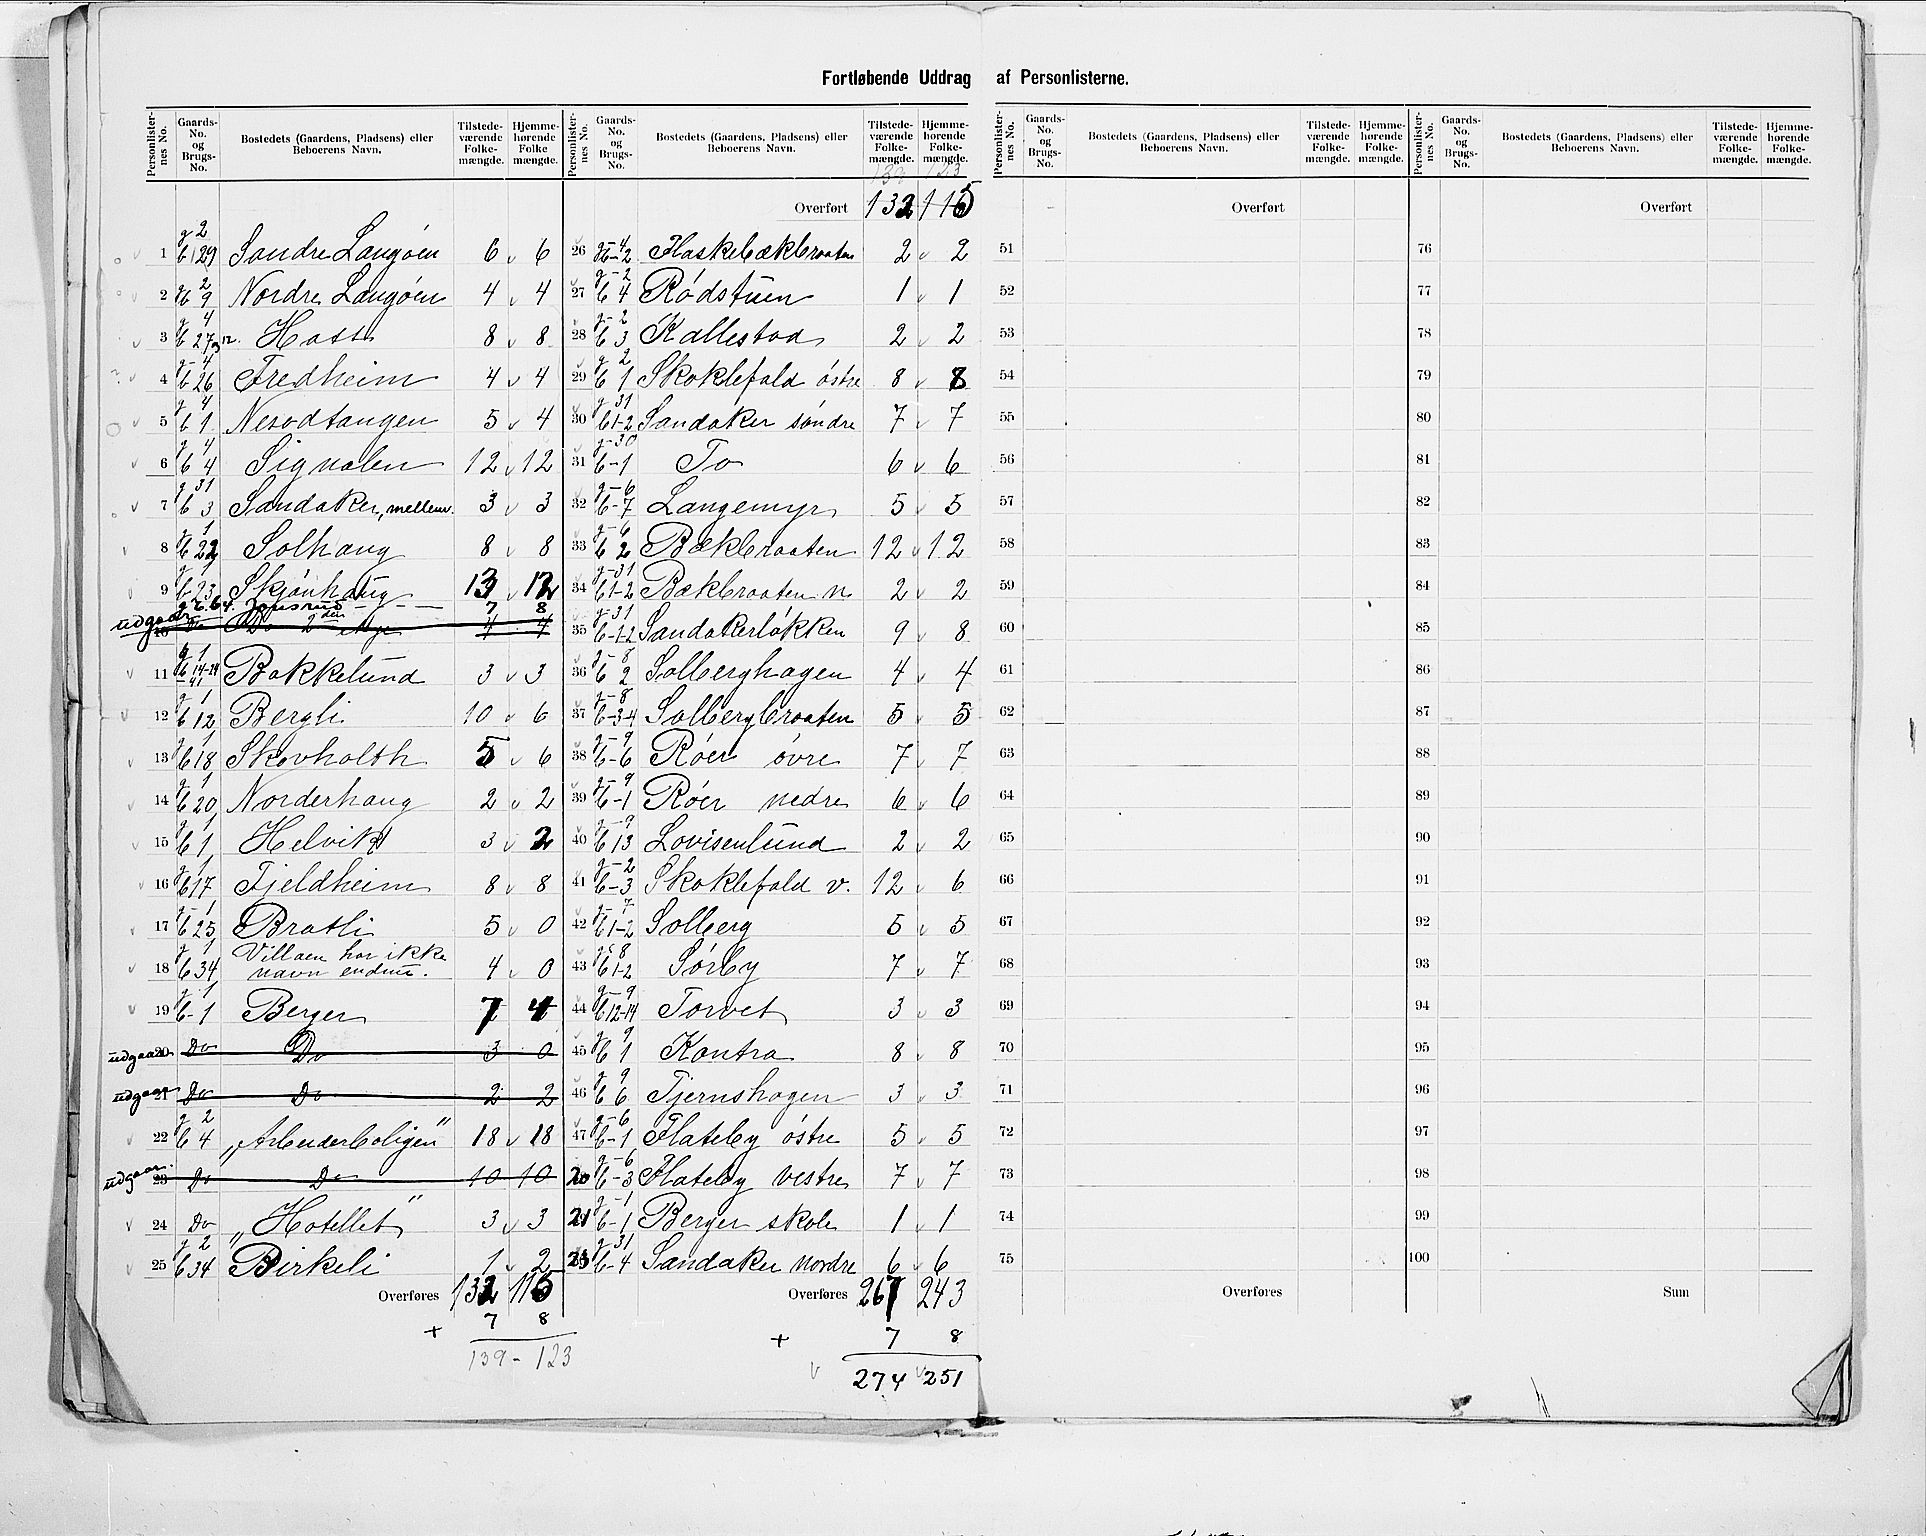 Fortløbende Uddrag af Personlisterne.
Personlisternes No. | Gaards-No. og Brugs-No. | Bostedets (Gaardens, Pladsens) eller Beboerens Navn. | Tilstedeværende Folkemængde. | Hjemmehørende Folkemængde.
1 | g 2 b 129 | Søndre Langøen | 6 | 6
2 | g 2 b 9 | Nordre Langøen | 4 | 4
3 | g 4 b 27 | Hast | 8 | 8
4 | g-4 b 26 | Fredheim | 4 | 4
5 | g 4 b 1 | Nesodtangen | 5 | 4
6 | g 4 b 4 | Signalen | 12 | 12
7 | g 31 b 3 | Sandaker, mellem. | 3 | 3
8 | g 1 b 22 | Solhaug | 8 | 8
9 | g 1 b 23 | Skjønhaug | 13 | 12
g 2. b 4. Jonsrud - - - 7 | 8
udgaar 10 | Do | Do 2den etage | 4 | 4
11 | g 1 b 14-24 41 | Bakkelund | 3 | 3
12 | g 1 b 12 | Bergli | 10 | 6
13 | g 1 b 18 | Skovholth | 5 | 6
14 | g 1 b 20 | Norderhaug | 2 | 2
15 | g 1 b 1 | Helvik | 3 | 2
16 | g 1 b 17 | Fjeldheim | 8 | 8
17 | g-1 b 25 | Bratli | 5 | 0
18 | g 1 b 34 | Villaen har ikke navn endnu. | 4 | 0
19 | g 1 b-1 | Berger | 7 | 4
udgaar 20 | Do | Do | 3 | 0
udgaar 21 | Do | Do | 2 | 2
22 | g 2 b 4 | „Arbeiderboligen" | 18 | 18
udgaar. 23 | Do | Do | 10 | 10
24 | Do | „Hotellet" | 3 | 3
25 | g 2 b 34 | Birkeli | 1 | 2
Overføres 132 | 115
+ 7 | 8
139 - 123
Personlisternes No. | Gaards-No. og Brugs-No. | Bostedets (Gaardens, Pladsens) eller Beboerens Navn. | Tilstedeværende Folkemængde. | Hjemmehørende Folkemængde.
139 123
Overført 132 | 115
26 | g-4 b-2 | Flaskebækbraaten | 2 | 2
27 | g-2 b 4 | Rødstuen | 1 | 1
28 | g-2 b 3 | Kallestad | 2 | 2
29 | g 2 b 1 | Skoklefald østre | 8 | 8
30 | g 31 b 1-2 | Sandaker søndre | 7 | 7
31 | g-30 b-1 | To | 6 | 6
32 | g-6 b-7 | Langemyr | 5 | 5
33 | g-6 b 2 | Bækbraaten | 12 | 12
34 | g-31 b 1-2 | Bækbraaten n | 2 | 2
35 | g-31 b-1-2 | Sandakerløkken | 9 | 8
36 | g-8 b 2 | Solberghagen | 4 | 4
37 | g-8 b-3-4 | Solbergbraaten | 5 | 5
38 | g-9 b-6 | Røer øvre | 7 | 7
39 | g-9 b-1 | Røer nedre | 6 | 6
40 | g-9 b 13 | Lovisenlund | 2 | 2
41 | g-2 b-3 | Skoklefald v. | 12 | 6
42 | g-7 b 1-2 | Solberg | 5 | 5
43 | g 8 b 1-2 | Sørby | 7 | 7
44 | g-9 b 12-14 | Torvet | 3 | 3
45 | g 9 b 1 | Kontra | 8 | 8
46 | g 9 b 6 | Tjernshagen | 3 | 3
47 | g-6 b-1 | Flateby østre | 5 | 5
20 | g-6 b-3 | Flateby vestre | 7 | 7
21 | g-1 b-1 | Berger skole | 1 | 1
23 | g 31 b-4 | Sandaker nordre | 6 | 6
Overføres 267 | 243
+ 7 | 8
274 | 251
Personlisternes No. | Gaards-No. og Brugs-No. | Bostedets (Gaardens, Pladsens) eller Beboerens Navn. | Tilstedeværende Folkemængde. | Hjemmehørende Folkemængde.
Overført
51
52
53
54
55
56
57
58
59
60
61
62
63
64
65
66
67
68
69
70
71
72
73
74
75
Overføres
Personlisternes No. | Gaards-No. og Brugs-No. | Bostedets (Gaardens, Pladsens) eller Beboerens Navn. | Tilstedeværende Folkemængde. | Hjemmehørende Folkemængde.
Overført
76
77
78
79
80
81
82
83
84
85
86
87
88
89
90
91
92
93
94
95
96
97
98
99
100
Sum